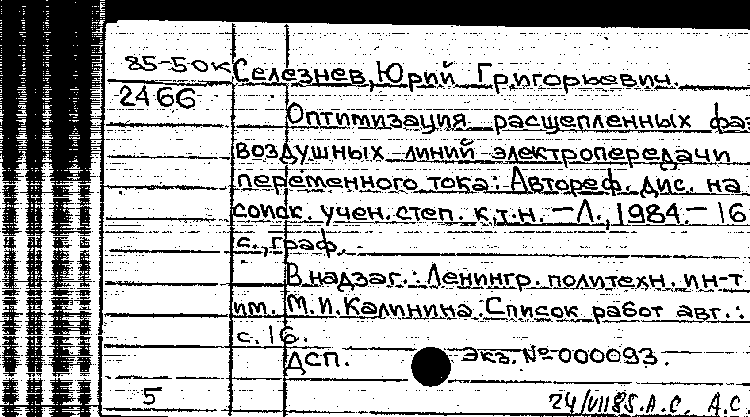 85-50к Селезнев, Юрий Григорьевич.
2466
Оптимизация расщепленных фаз
воздушных линий электропередачи
переменного тока: Автореф. дис. на
соиск. учен. степ. к.т.н. — Л., 1984. — 16
с., граф.
В надзаг.: Ленингр. политехн. ин-т
им. М.И. Калинина. Список работ авт.:
с. 16.
ДСП. Экз. № 000093.
5 24/VII85. А.С. А.С.